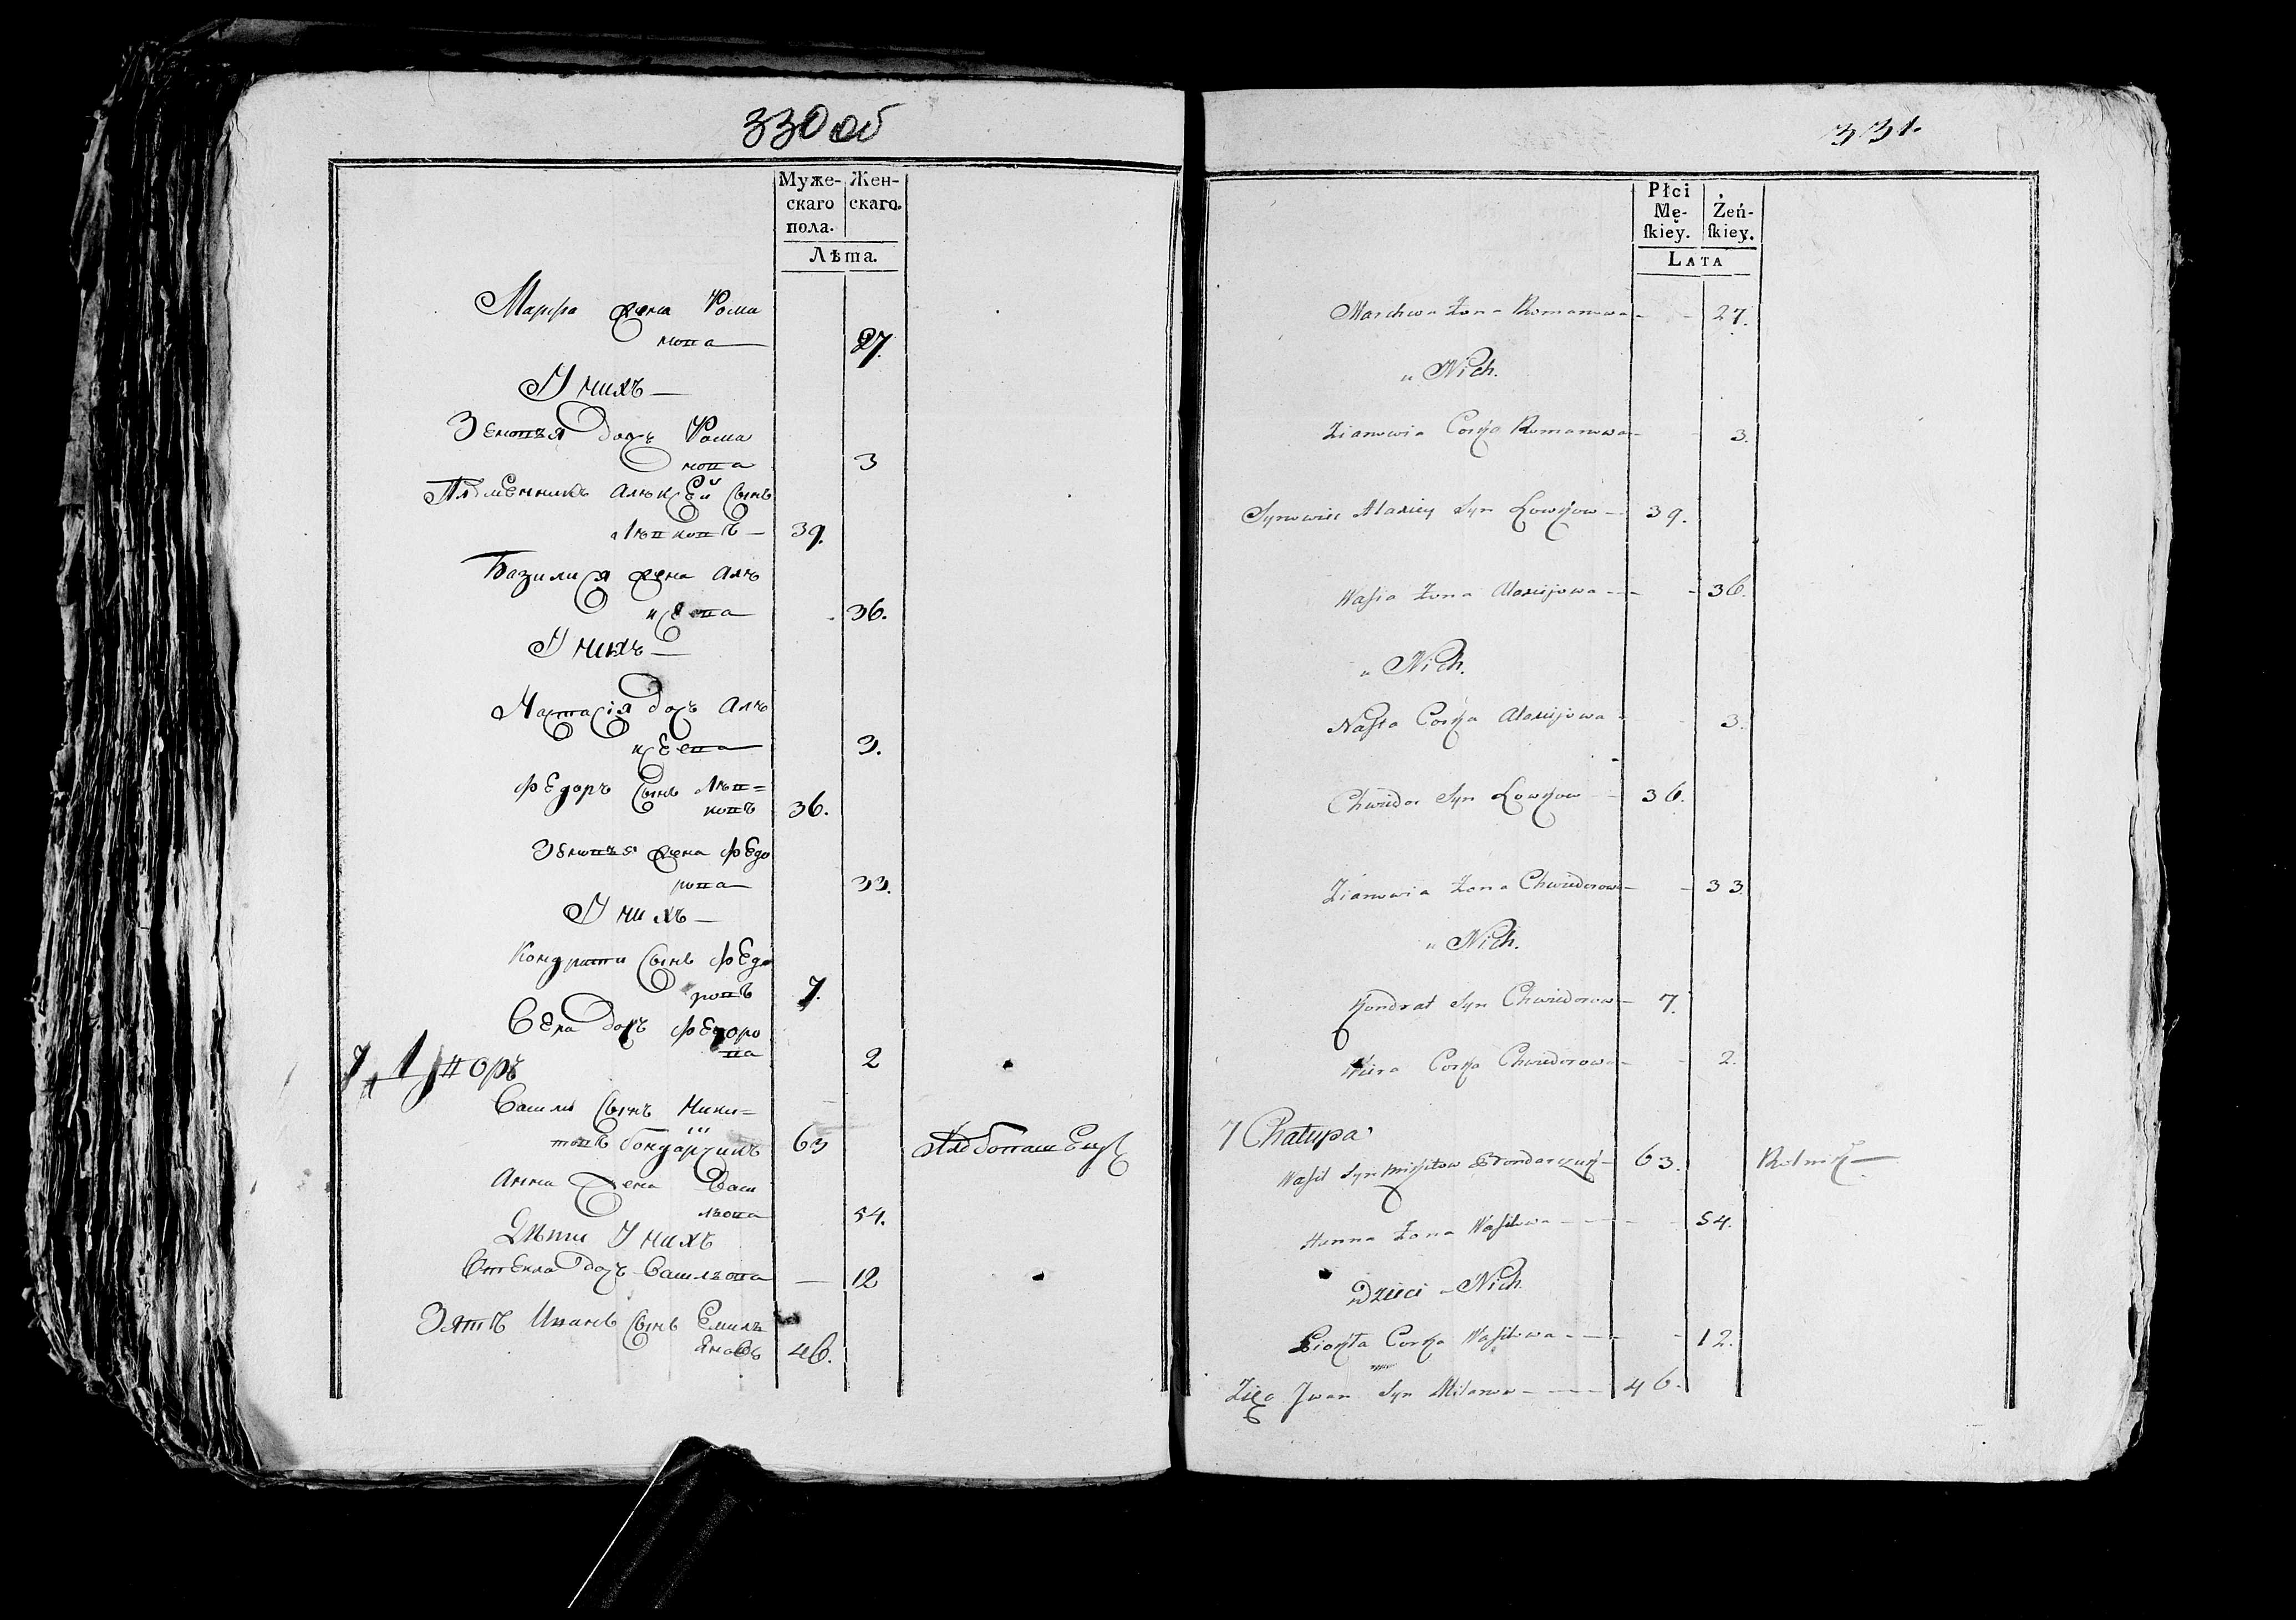 330 об
Муже-
скаго
пола.
Жен-
скаго.
Лѣта.
Марфа жена Рома
нова 27
У нихъ
Зеновья дочь Рома
нова 3
Племенникъ Алексѣй сынъ
Левковъ 39.
Базилися жена Але
ксѣева 36.
У нихъ
Настасія дочь Але
ксѣева 3.
Федоръ сынъ Лев=
ковъ 36.
Зеновья жена Федо
рова 33.
У нихъ
Кондратии сынъ Федо
ровъ 7.
Вера дочь Федоро
ва 2
7 Дворъ
Василь сынъ Мики=
товъ Бондарчикъ 63
Анна жена Васи
льова 54.
Дѣти У нихъ
Фтекла дочь Васильова — 12
Зять Иванъ сынъ Емиль
яновъ 46.
331.
Płci
Mę-
skiey.
Żeń-
skiey.
LATA
Marchwa Żona Romanowa 27.
u Nich.
Zianowia Corka Romanowa 3.
Synowiec Alaxiey Syn Lowkow 39.
Wasia Żona Alaxiejowa 36.
u Nich.
Nasta Corka Alaxiejowa 3.
Chwiedor Syn Lowkow 36.
Zianowia Żona Chwiedorow 33.
u Nich.
Kondrat Syn Chwiedorow 7.
Wiera Corka Chwiedorowa 2.
7 Chałupa
Wasil Syn Mikitow Bondarczuk 63. Rolnik
Hanna Żona Wasilowa 54.
Dzieci u Nich.
Ciokla Corka Wasilowa 12.
Zięc Jwan Syn Milanow 46.